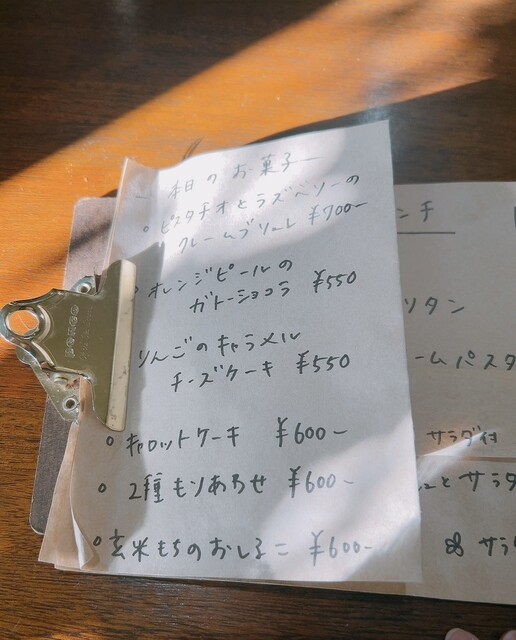 本日のお菓子
ピスタチオとラズベリーの
クレームブリュレ ¥700-
オレンジピールの
ガトーショコラ ¥550
りんごのキャラメル
チーズケーキ ¥550
キャロットケーキ ¥600-
2種もりあわせ ¥600-
玄米もちのおしるこ ¥600-
ンチ
リタン
ームパスタ
サラダ付
とサラダ
サラ